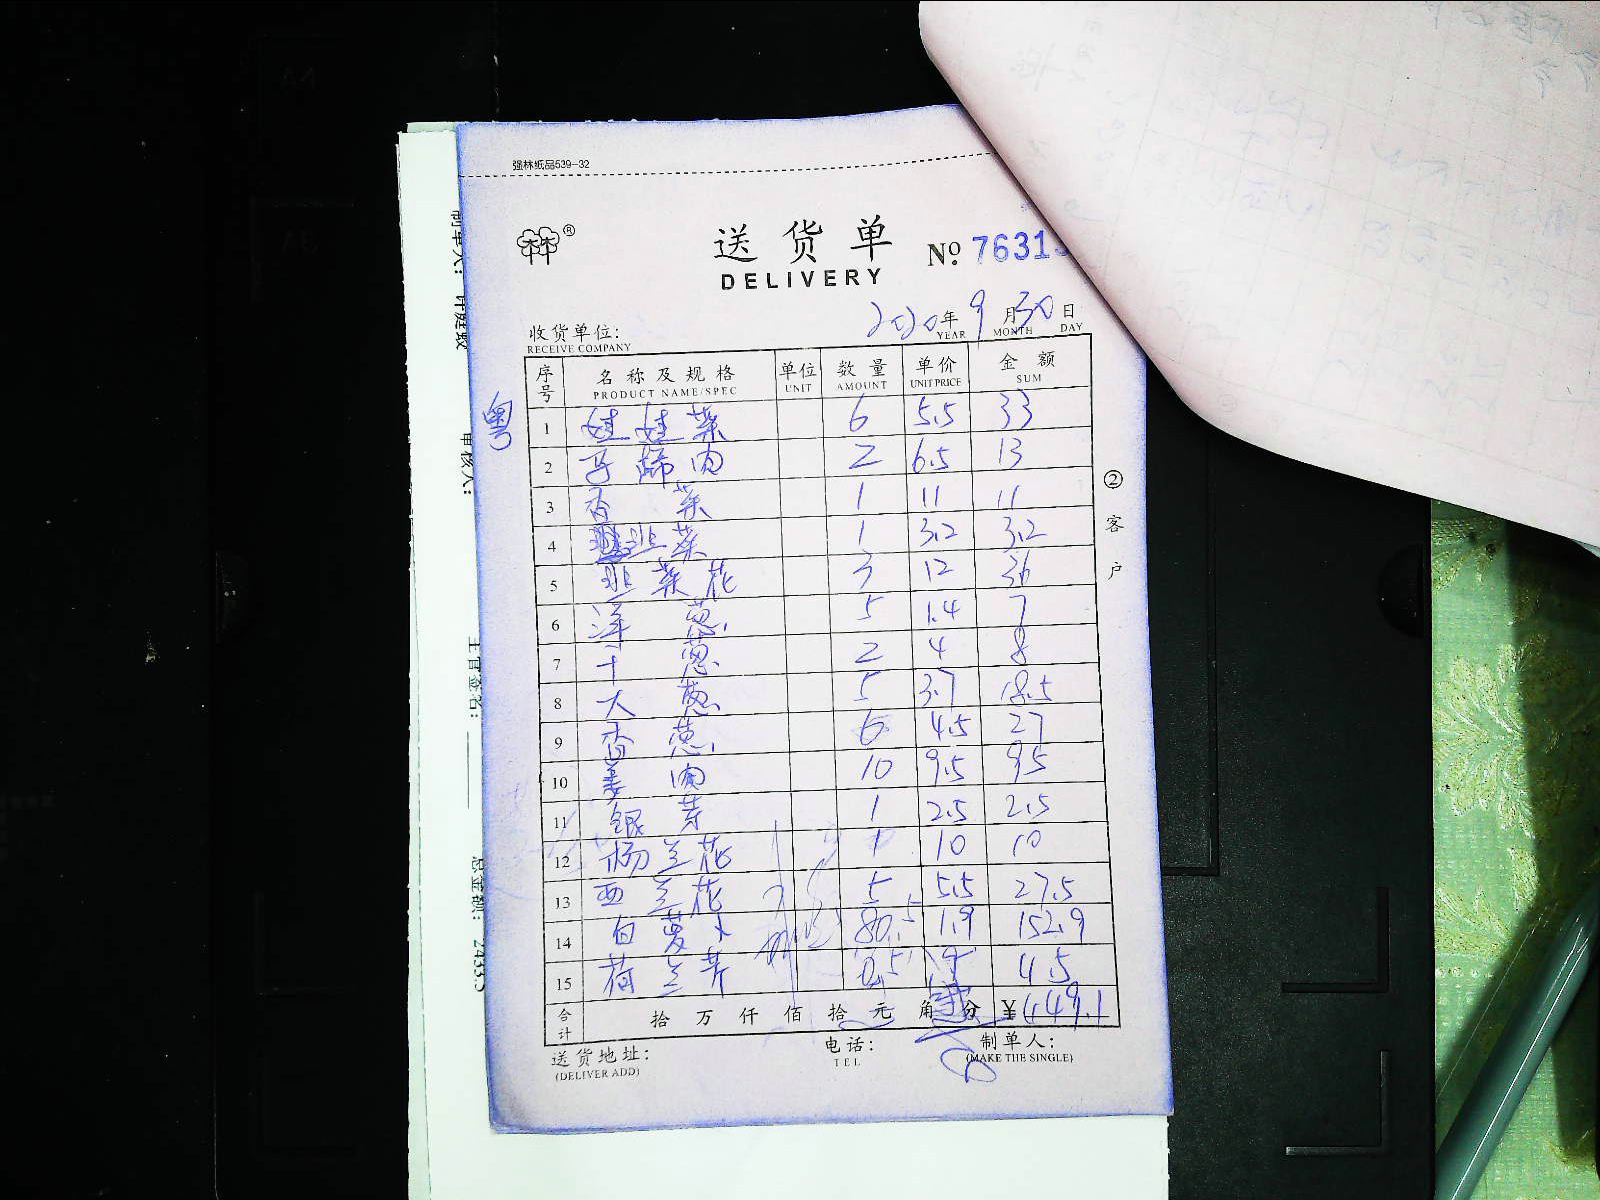 强林纸品539-32
送货单
DELIVERY
№ 7631
2020年9月30日
YEAR MONTH DAY
收货单位:
RECEIVE COMPANY
序号 名称及规格 单位 数量 单价 金额
PRODUCT NAME/SPEC UNIT AMOUNT UNIT PRICE SUM
粤
1 娃娃菜 6 5.5 33
2 马蹄肉 2 6.5 13
3 香菜 1 11 11
4 韭菜 1 3.2 3.2
5 韭菜花 3 12 36
6 洋葱 5 1.4 7
7 干葱 2 4 8
8 大葱 5 3.7 18.5
9 香葱 6 4.5 27
10 姜肉 10 9.5 95
11 银芽 1 2.5 2.5
12 杨兰花 1 10 10
13 西兰花 5 5.5 27.5
14 白萝卜 80.5 1.9 152.9
15 荷兰芹 0.5 9 4.5
合计 拾万仟佰拾元角分 ¥449.1
送货地址: 电话: 制单人:
(DELIVER ADD) TEL (MAKE THE SINGLE)
②客户
制单人: 许庭致
审核人:
主管签名:
总金额: